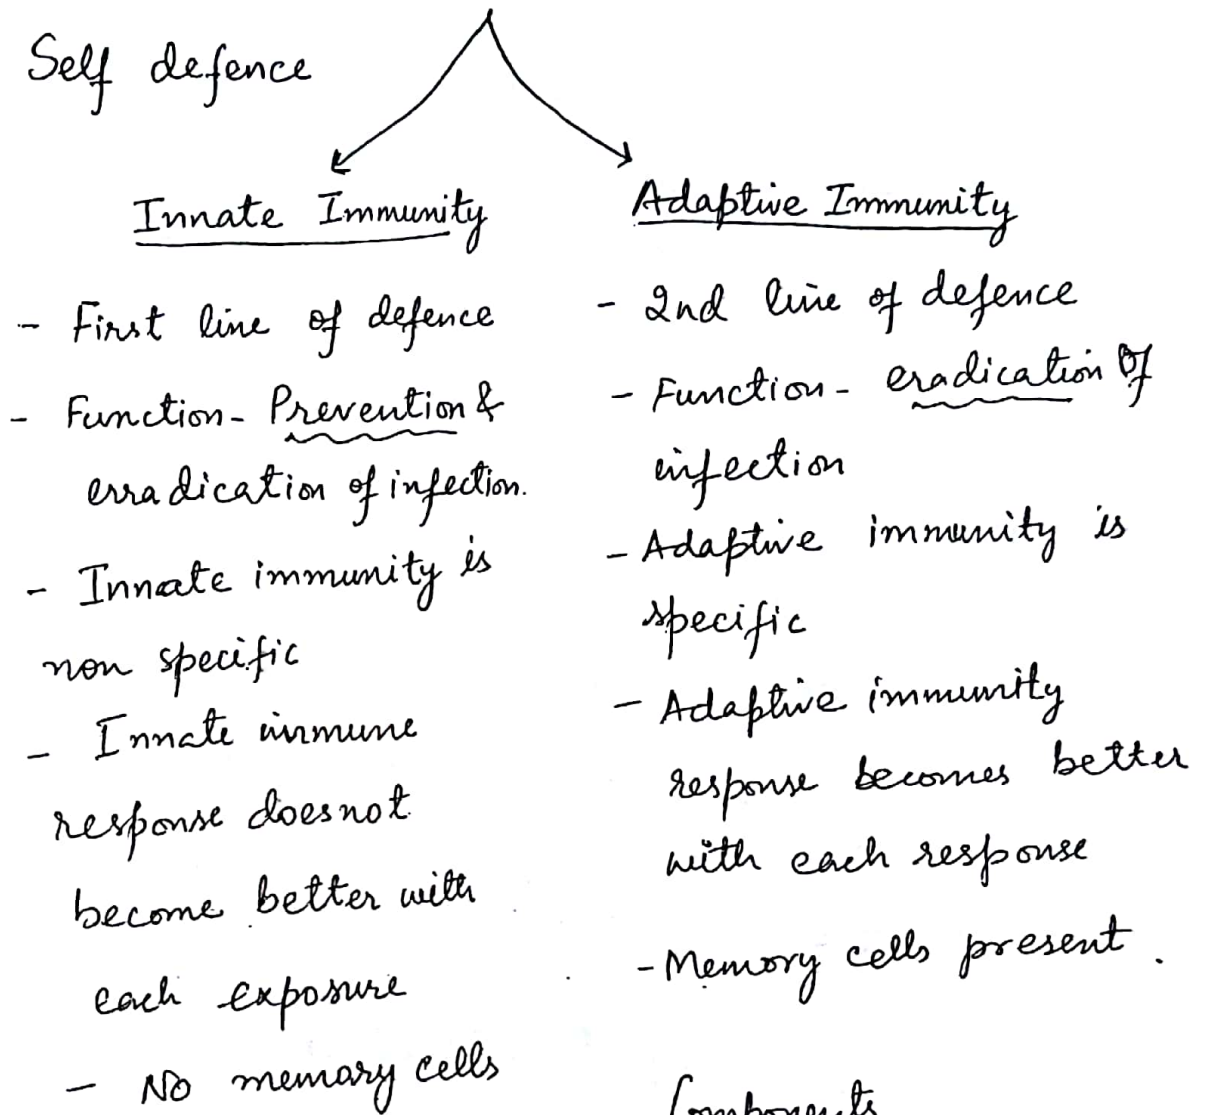 Self defence
Innate Immunity
- First line of defence
- Function - Prevention &
erradication of infection.
- Innate immunity is
non specific
- Innate immune
response doesnot
become better with
each exposure
- No memory cells
Adaptive Immunity
- 2nd line of defence
- Function - eradication of
infection
- Adaptive immunity is
specific
- Adaptive immunity
response becomes better
with each response
- Memory cells present.
Components